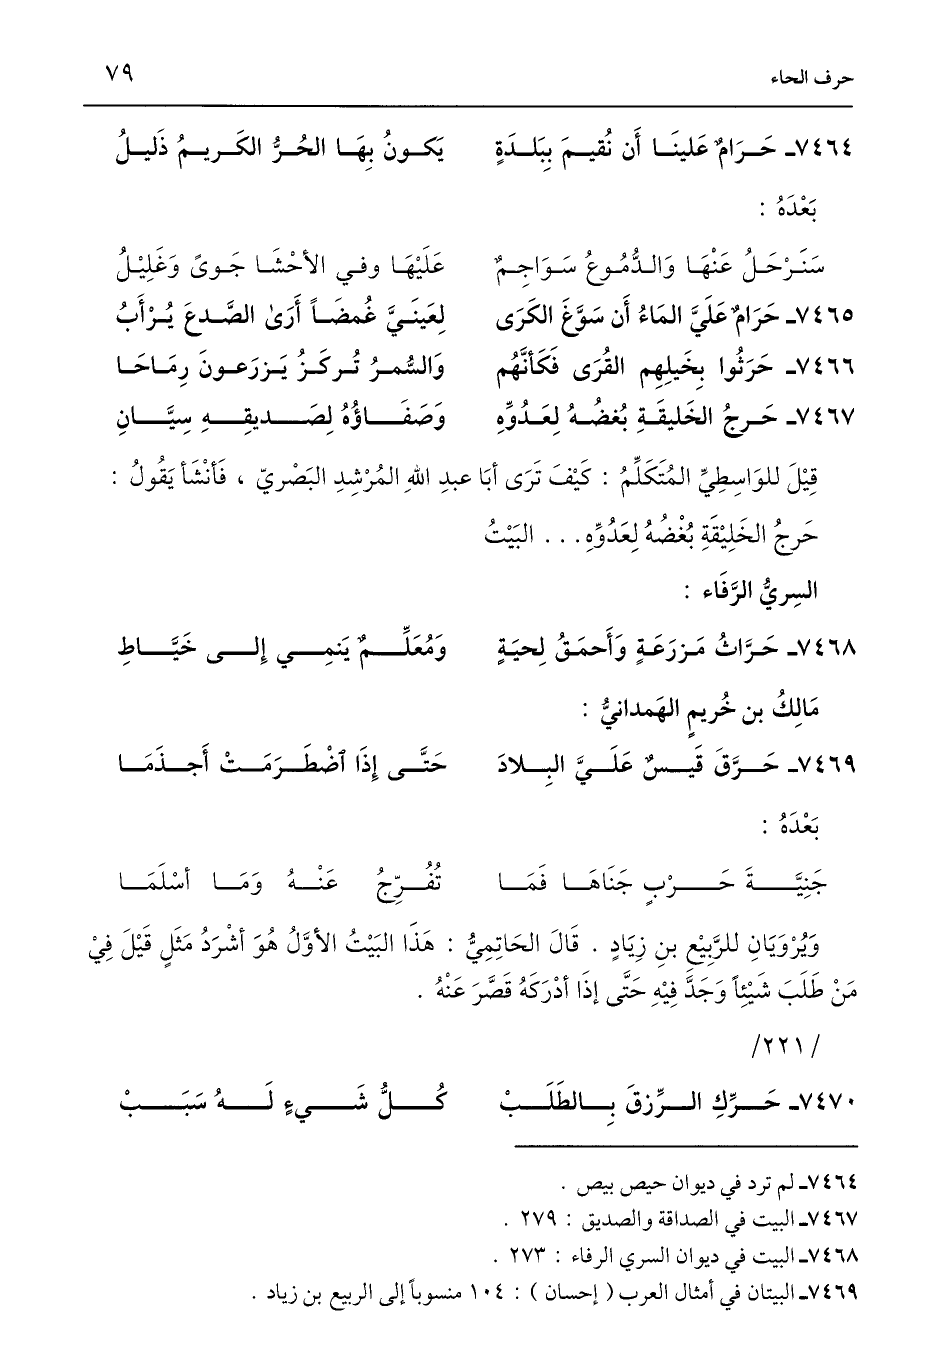 حرف الحاء ٧٩
٧٤٦٤ـ حَـرَامٌ عَلينَـا أَن نُقيـمَ بِبَلـدَةٍ يَكـونُ بِهَـا الحُـرُّ الكَـريـمُ ذَليـلُ
بَعْدَهُ :
سَنَـرْحَـلُ عَنْهَـا وَالـدُّمُـوعُ سَـوَاجِـمٌ عَلَيْهَـا وفـي الأحْشَـا جَـوىً وَغَلِيْـلُ
٧٤٦٥ـ حَرَامٌ عَلَيَّ المَاءُ أن سَوَّغَ الكَرَى لِعَينَـيَّ غُمضَـاً أَرَىٰ الصَّـدعَ يُـرْأَبُ
٧٤٦٦ـ حَرَثُوا بِخَيلِهِم القُرَى فَكَأنَّهُم وَالسُّمـرُ تُـركَـزُ يَـزرَعـونَ رِمَـاحَـا
٧٤٦٧ـ حَـرِجُ الخَليقَـةِ بُغضُـهُ لِعَـدُوِّهِ وَصَفَـاؤُهُ لِصَـديقِـهِ سِيَّـانِ
قِيْلَ للوَاسِطِيِّ المُتَكَلِّمُ : كَيْفَ تَرَى أبَا عبدِ اللهِ المُرْشِدِ البَصْرِيّ ، فَأنْشَأ يَقُولُ :
حَرِجُ الخَلِيْقَةِ بُغْضُهُ لِعَدُوِّهِ . . . البَيْتُ
السِريُّ الرَّفَاء :
٧٤٦٨ـ حَـرَّاثُ مَـزرَعَـةٍ وَأحمَـقُ لِحيَـةٍ وَمُعَلِّـمٌ يَنمِـي إلـى خَيَّـاطِ
مَالِكُ بن خُريمٍ الهَمدانيُّ :
٧٤٦٩ـ حَـرَّقَ قَيـسٌ عَلَـيَّ البِـلادَ حَتَّـى إِذَا ٱضْطَـرَمَـتْ أَجـذَمَـا
بَعْدَهُ :
جَنِيَّـةَ حَـرْبٍ جَنَاهَـا فَمَـا تُفُـرِّجُ عَنْـهُ وَمَـا أسْلَمَـا
وَيُرْوَيَانِ للرَّبِيْعِ بنِ زِيَادٍ . قَالَ الحَاتِمِيُّ : هَذَا البَيْتُ الأوَّلُ هُوَ أشْرَدُ مَثَلٍ قِيْلَ فِيْ
مَنْ طَلَبَ شَيْئاً وَجَدَّ فِيْهِ حَتَّى إذَا أدْرَكَهُ قَصَّرَ عَنْهُ .
/٢٢١/
٧٤٧٠ـ حَـرِّكِ الـرِّزقَ بِـالطَلَـبْ كُـلُّ شَـيءٍ لَـهُ سَبَـبْ
٧٤٦٤ـ لم ترد في ديوان حيص بيص .
٧٤٦٧ـ البيت في الصداقة والصديق : ٢٧٩ .
٧٤٦٨ـ البيت في ديوان السري الرفاء : ٢٧٣ .
٧٤٦٩ـ البيتان في أمثال العرب ( إحسان ) : ١٠٤ منسوباً إلى الربيع بن زياد .